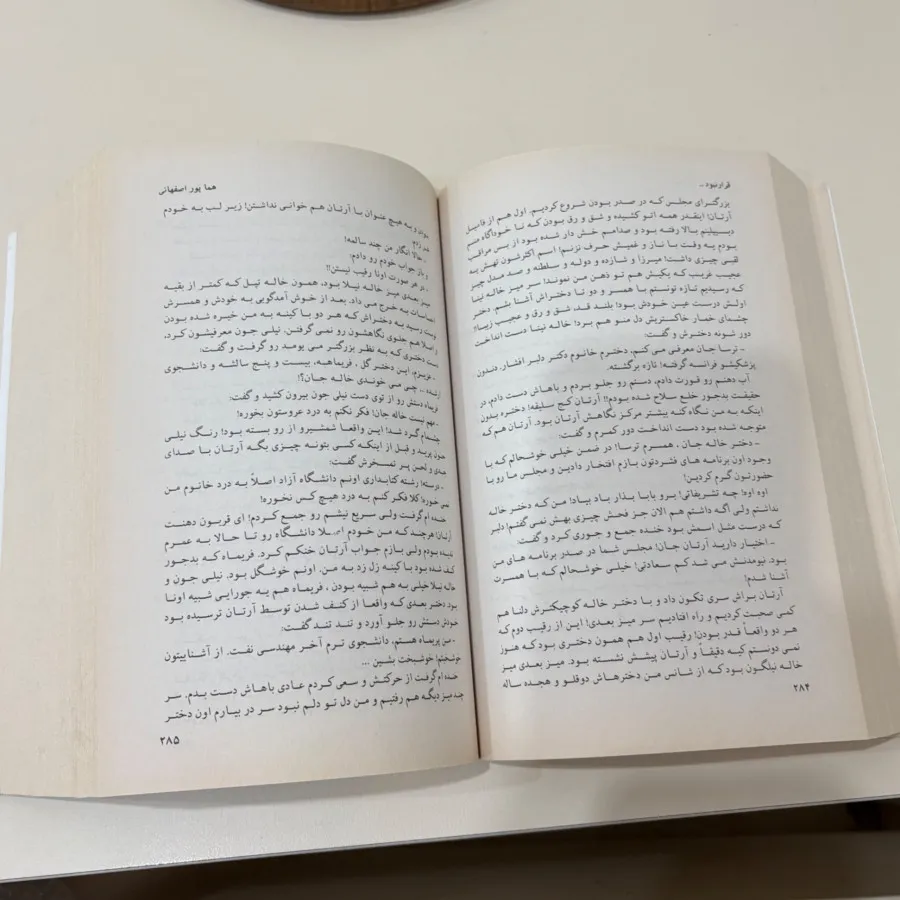 قرار نبود ـ
بزرگترای مجلس که در صدر بودن شروع کردیم. اول هم از فامیل
آرتان! اینقدر همه اتو کشیده و شق و رق بودن که تا خودآگاه منم
دیسیپلینم بالا رفته بود و صدامم خش دار شده بود از بس مراقب
بودم یه وقت با ناز و غمیش حرف نزنم! اسم اکثرشون تهش یه
لقبی چیزی داشت! میرزا و شازده و دوله و سلطنه و صد مدل چیز
عجیب غریب که یکیش هم تو ذهن من نموند! سر میز خاله نیتا
که رسیدیم تازه تونستم با همسر و دو تا دختراش آشنا بشم. دختر
اولش درست عین خودش بود! بلند قد، شق و رق و عجیب زیبا!
چشمای خمار خاکستریش دل منو هم برد! خاله نیتا دست انداخت
دور شونه دخترش و گفت:
- ترسا جان معرفی می کنم، دخترم خانوم دکتر دلبر افشار. دندون
پزشکیشو فرانسه گرفته! تازه برگشته.
آب دهنم رو قورت دادم، دستم رو جلو بردم و باهاش دست دادم، در
حقیقت بدجور خلع سلاح شده بودم!! آرتان کج سلیقه! دختره بدون
اینکه به من نگاه کنه بیشتر مرکز نگاهش آرتان بود. آرتان هم که
متوجه شده بود دست انداخت دور کمرم و گفت:
- دختر خاله جان ، همسرم ترسا! در ضمن خیلی خوشحالم که با
وجود اون برنامه های فشردتون بازم افتخار دادین و مجلس ما رو با
حضورتون گرم کردین!
اوه اوه! چه تشریفاتی! برو بابا بذار باد بیاد! من که دختر خاله
نداشتم ولی اگه داشتم هم الان جز فحش چیزی بهش نمی گفتم! دلبر
که درست مثل اسمش بود خنده جمع و جوری کرد و گفت:
- اختیار دارید آرتان جان! مجلس شما در صدر برنامه های من
بود. نیومدنش می شد کم سعادتی! خیلی خوشحالم که با همسرت
آشنا شدم!
آرتان براش سری تکون داد و با دختر خاله کوچیکترش دلنا هم
کمی صحبت کردیم و راه افتادیم سر میز بعدی! این از رقیب دوم که
هر دو واقعاً قدر بودن! رقیب اول هم همون دختری بود که هنوز
نمی دونستم کیه دقیقاً و آرتان پیشش نشسته بود. میز بعدی میز
خاله نیلگون بود که از شانس من دخترهاش دوقلو و هجده ساله
۲۸۴
هما پور اصفهانی
بودن و به هیچ عنوان با آرتان هم خوانی نداشتن! زیر لب به خودم
غر زدم
- حالا انگار من چند سالمه!
و باز جواب خودم رو دادم:
- در هر صورت اونا رقیب نیستن!!
میز بعدی میز خاله نیلا بود، همون خاله تپل که کمتر از بقیه
احساسات به خرج می داد. بعد از خوش آمدگویی به خودش و همسرش
نوبت رسید به دختراش که هر دو با کینه به من خیره شده بودن
و اصلا هم جلوی نگاهشون رو نمی گرفتن. نیلی جون معرفیشون کرد،
دست دختری که به نظر بزرگتر می یومد رو گرفت و گفت:
- عزیزم، این دختر گل ، فریماهه. بیست و پنج سالشه و دانشجوی
ارشده ... چی می خوندی خاله جان؟!
فریماه دستش رو از توی دست نیلی جون بیرون کشید و گفت:
- مهم نیست خاله جان! فکر نکنم به درد عروستون بخوره!
چشمام گرد شد! این واقعا شمشیرو از رو بسته بود! رنگ نیلی
جون پرید و قبل از اینکه کسی بتونه چیزی بگه آرتان با صدای
جدی و لحن پر تمسخرش گفت:
- درسته! رشته کتابداری اونم دانشگاه آزاد اصلاً به درد خانوم من
نمی خوره! کلا فکر کنم به درد هیچ کس نخوره!
خنده ام گرفت ولی سریع نیشم رو جمع کردم! ای قربون دهنت
آرتان! هرچند که من خودم اصلا دانشگاه رو تا حالا به عمرم
ندیده بودم ولی بازم جواب آرتان خنکم کرد. فریماه که بدجور
کنف شده بود با کینه زل زد به من. اونم خوشگل بود. نیلی جون و
خاله نیلا خیلی به هم شبیه بودن ، فریماه هم یه جورایی شبیه اونا
بود دختر بعدی که واقعا از کنف شدن توسط آرتان ترسیده بود
خودش دستش رو جلو آورد و تند تند گفت:
- من پریماه هستم، دانشجوی ترم آخر مهندسی نفت. از آشناییتون
خوشبختم! خوشبخت بشین ...
خنده ام گرفت از حرکتش و سعی کردم عادی باهاش دست بدم. سر
چند میز دیگه هم رفتیم و من دل تو دلم نبود سر در بیارم اون دختر
۲۸۵